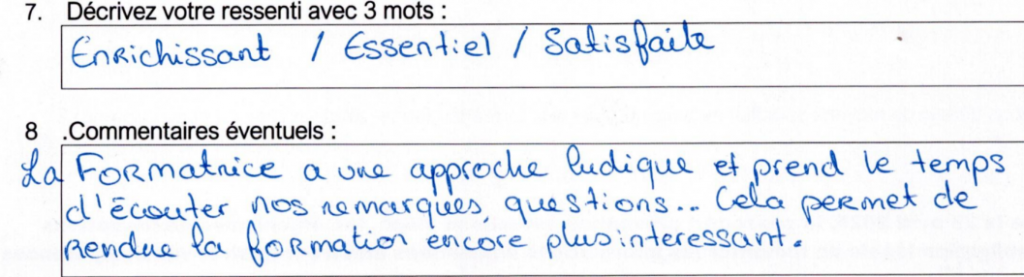 7. Décrivez votre ressenti avec 3 mots :
Enrichissant / Essentiel / Satisfaite
8 .Commentaires éventuels :
La Formatrice a une approche ludique et prend le temps
d'écouter nos remarques, questions... Cela permet de
rendre la formation encore plus interessant.